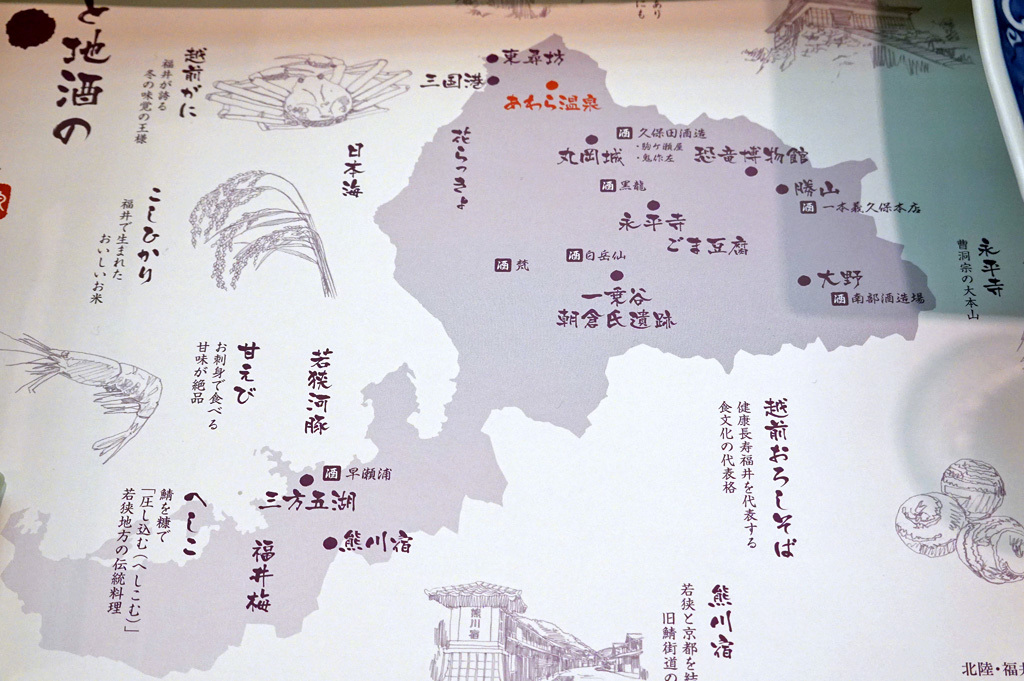 と地酒の
越前がに
福井が誇る
冬の味覚の王様
東尋坊
三国港
あわら温泉
花らっきょ
日本海
丸岡城
酒 久保田酒造
・駒ケ瀬屋
・鬼作左
恐竜博物館
勝山
酒 一本義久保本店
酒 黒龍
永平寺
ごま豆腐
酒 白岳仙
酒 梵
一乗谷
朝倉氏遺跡
大野
酒 南部酒造場
永平寺
曹洞宗の大本山
こしひかり
福井で生まれた
おいしいお米
甘えび
お刺身で食べる
甘味が絶品
若狭河豚
越前おろしそば
健康長寿福井を代表する
食文化の代表格
酒 早瀬浦
三方五湖
熊川宿
福井梅
へしこ
鯖を糠で
「圧し込む(へしこむ)」
若狭地方の伝統料理
熊川宿
熊川宿
若狭と京都を結
旧鯖街道の
北陸・福井
あり
にも